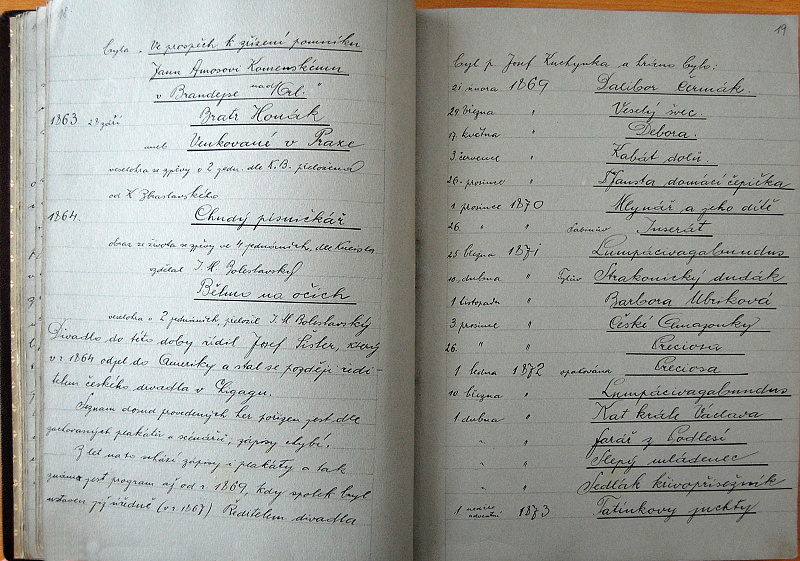 18.
byla „Ve prospěch k zřízení pomníku
Janu Amosovi Komenskému
v Brandejse nad Orl."
1863. 28 září Bratr Honák
aneb Venkované v Praze
veselohra se zpěvy o 2 jedn. dle K.B. přeložena
od K Zbraslavského
1864. Chudý písničkář
obraz ze života se zpěvy ve 4 jednáních, dle
vzdělal J. M Boleslavský
Bělmo na očích
veselohra v 2 jednáních, přeložil J. M Boleslavský
Divadlo do této doby řídil Josef Šisler, který
v r 1864 odjel do Ameriky a stal se později ředi-
telem českého divadla v Čigagu.
Seznam dosud provedených her pořízen jest dle
zachovaných plakátů a scenárií, zápisy chybí.
Z let na to schází zápisy i plakáty a tak
znám jest program až od r. 1869, kdy spolek byl
ustaven již úředně (v r 1867) Ředitelem divadla
19
byl p. Josef Kuchynka a hráno bylo:
21 února 1869 Dalibor Čermák.
29 března " Veselý švec.
17 května " Debora.
3. července " Kabát dolů.
26. prosince " Fausta domácí čepička
1 prosince 1870 Mlynář a jeho dítě
26. " " Inserát
25 března 1871 Lumpácivagabundus
10. dubna " Tylův Strakonický dudák
1 listopadu " Barbora Ubriková
3. prosince " České Amazonky
26. " " Preciosa
1 ledna 1872 opakována Preciosa
10. března " Lumpácivagabundus
1 dubna " Kat krále Václava
" " farář z Podlesí
" " Slepý mládenec
" " Sedlák křivopřísežník
1 neděle adventní 1873 Tatínkovy juchty